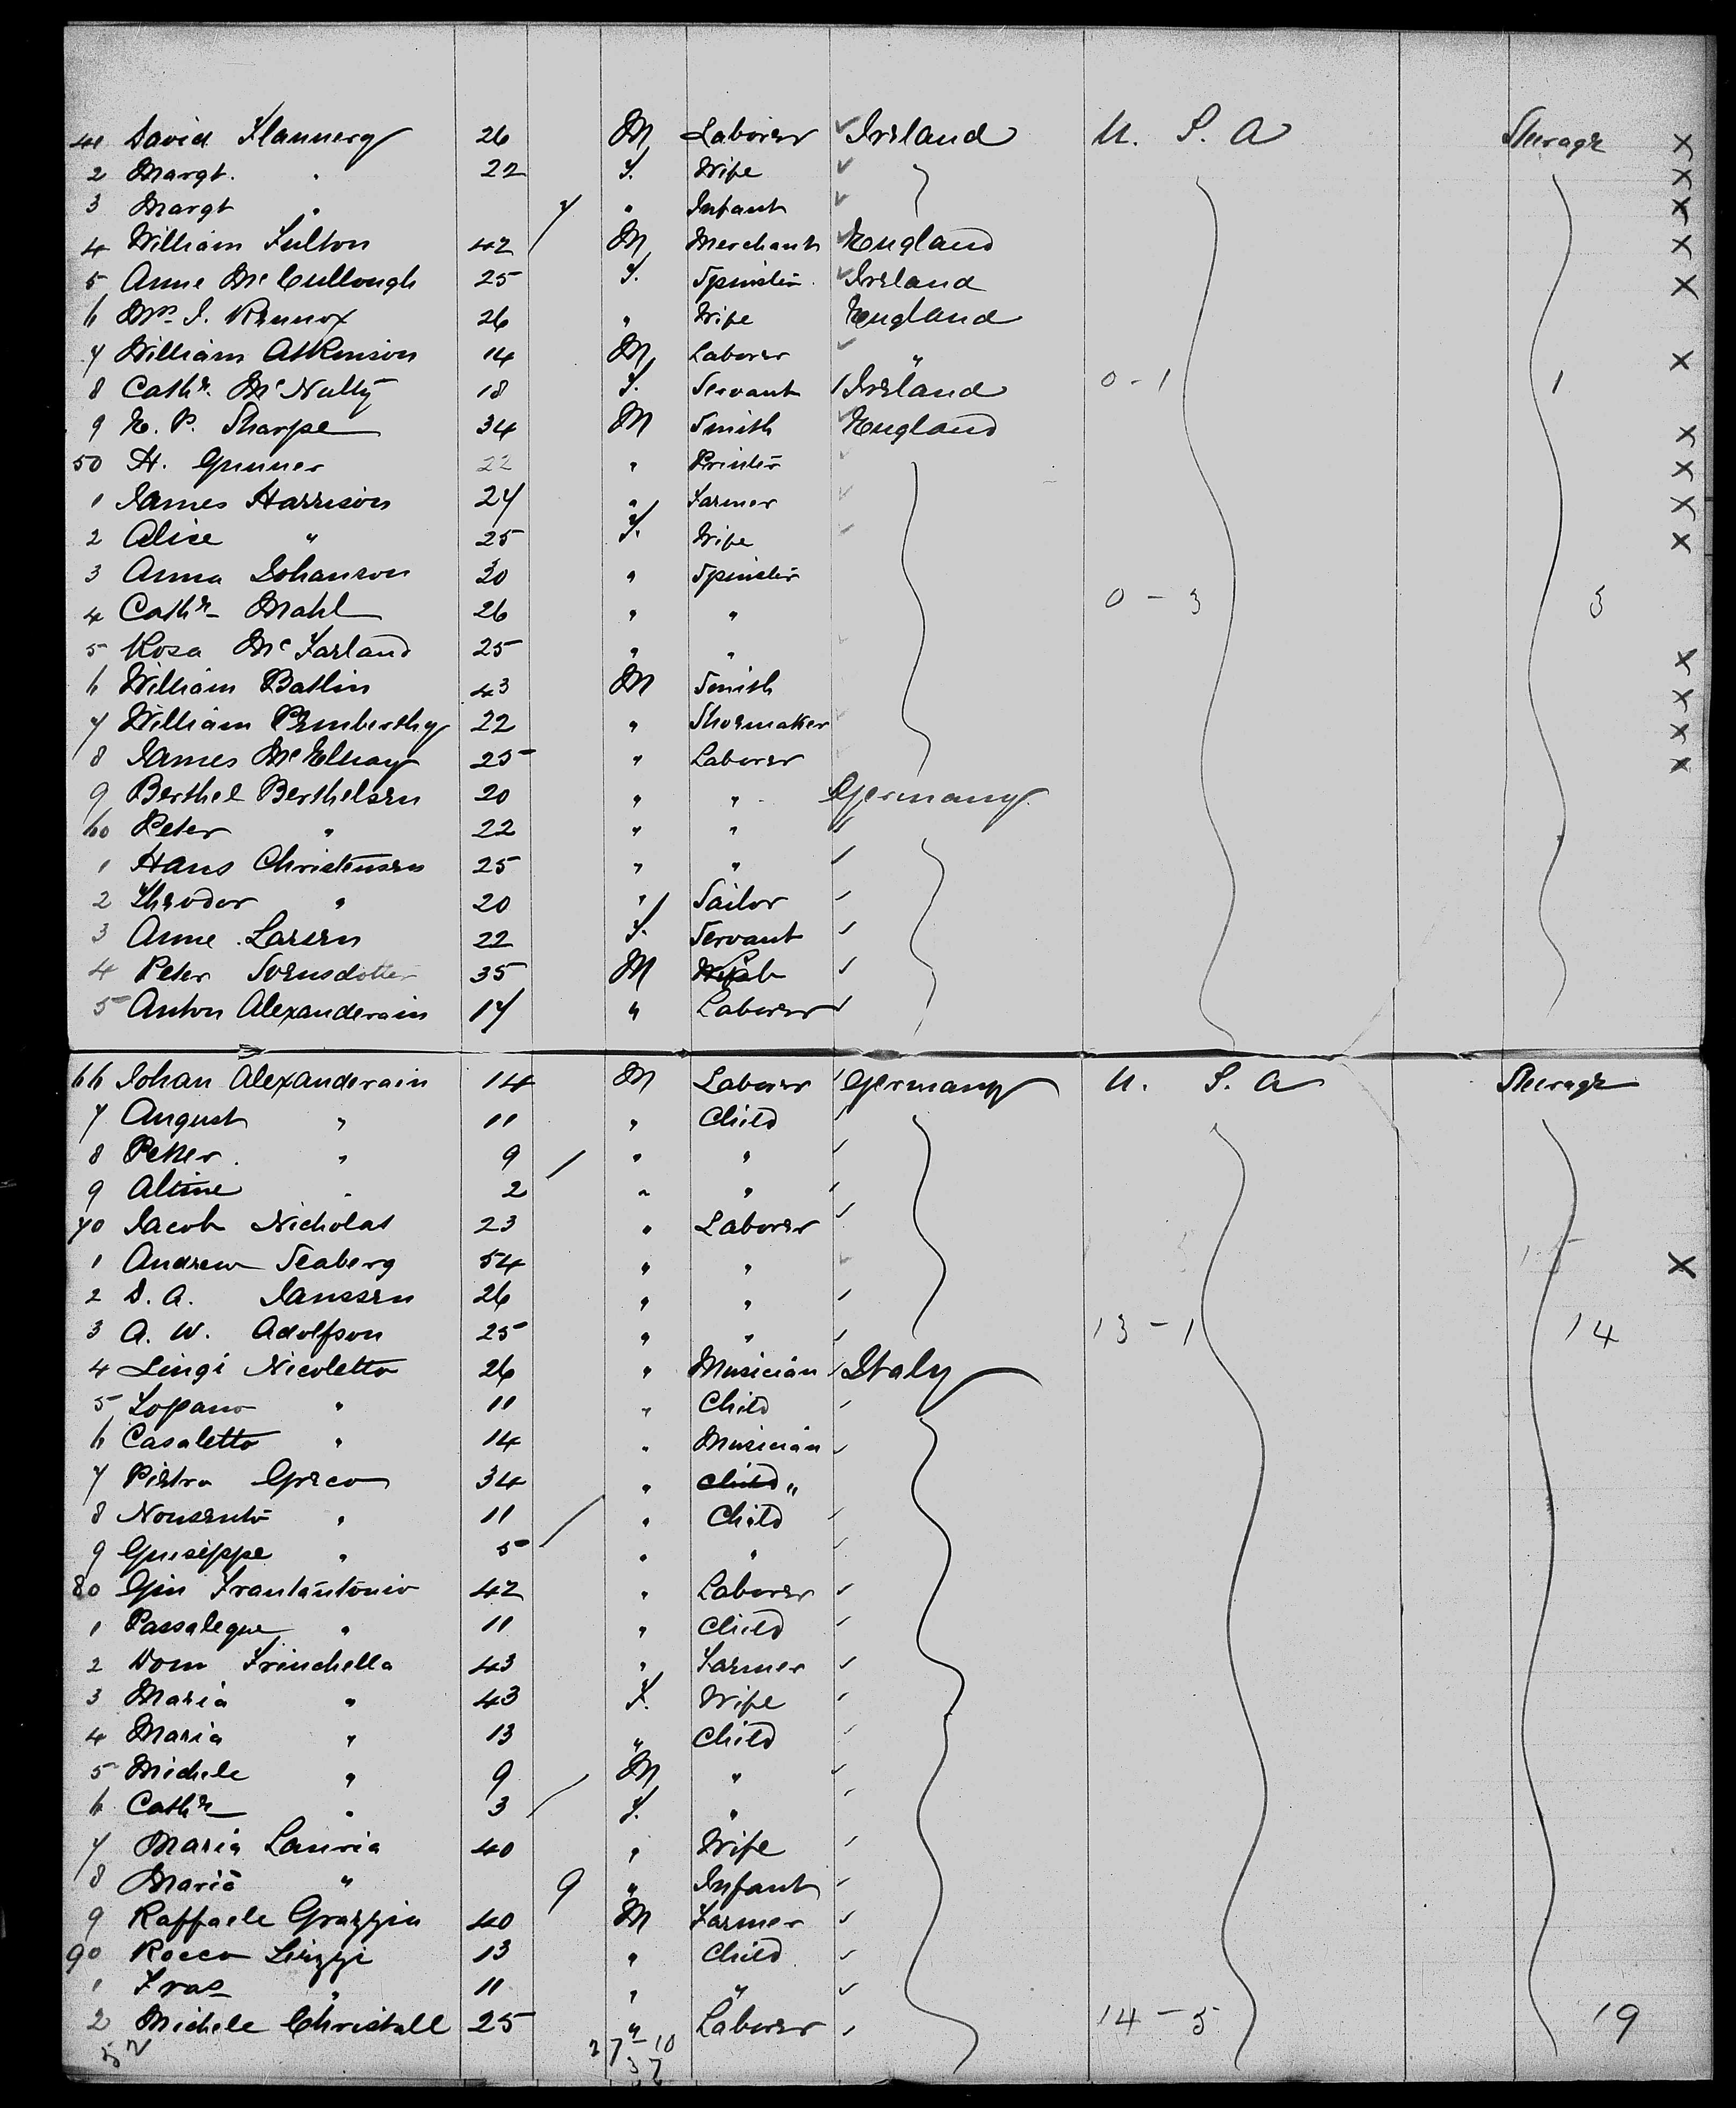 41 David Flannery 26 M Laborer Ireland U. S. A Steerage X
2 Margt. " 22 F. Wife X
3 Margt " 7 " Infant X
4 William Fulton 42 M Merchant England X
5 Anne McCullough 25 F. Spinster Ireland X
6 Mrs J. Kennox 26 " Wife England
7 William Atkinson 14 M Laborer " X
8 Cathr. McNulty 18 F. Servant Ireland 0 - 1 1
9 E. P. Sharpe 34 M Smith England X
50 H. Gunner 22 " Printer X
1 James Harrison 24 " Farmer X
2 Alice " 25 F. Wife X
3 Anna Johanson 30 " Spinster
4 Cathr Mahl 26 " " 0 - 3 3
5 Rosa McFarland 25 " " X
6 William Batlin 43 M Smith X
7 William Pemberthy 22 " Shoemaker X
8 James McElhay 25 " Laborer X
9 Berthel Berthelsen 20 " " Germany
60 Peter " 22 " "
1 Hans Christensen 25 " "
2 Theodor " 20 " Sailor
3 Anne Larsen 22 F. Servant
4 Peter Svensdotter 35 M
5 Anton Alexanderain 17 " Laborer
66 Johan Alexanderain 14 M Laborer Germany U. S. A Steerage
7 August " 11 " Child
8 Petter " 9 " "
9 Altine " 2 " "
70 Jacob Nicholas 23 " Laborer
1 Andrew Seaberg 54 " " X
2 D. A. Janssen 26 " "
3 A. W. Adolfson 25 " " 13 - 1 14
4 Luigi Nicoletto 26 " Musician Italy
5 Lopano " 11 " Child
6 Casaletto " 14 " Musician
7 Pietro Greco 34 " Child "
8 Nonsento " 11 " Child
9 Guiseppe " 5 " "
80 Gin Frantantonio 42 " Laborer
1 Passaleque " 11 " Child
2 Dom Frinchella 43 " Farmer
3 Maria " 43 F. Wife
4 Maria " 13 " Child
5 Michele " 9 M "
6 Cathr " 3 F. "
7 Maria Lauria 40 " Wife
8 Maria " 9 " Infant
9 Raffaele Grazzia 40 M Farmer
90 Rocco Lizzi 13 " Child
1 Fras " 11 " "
2 Michele Christall 25 " Laborer 14 - 5 19
52 27 - 10
37